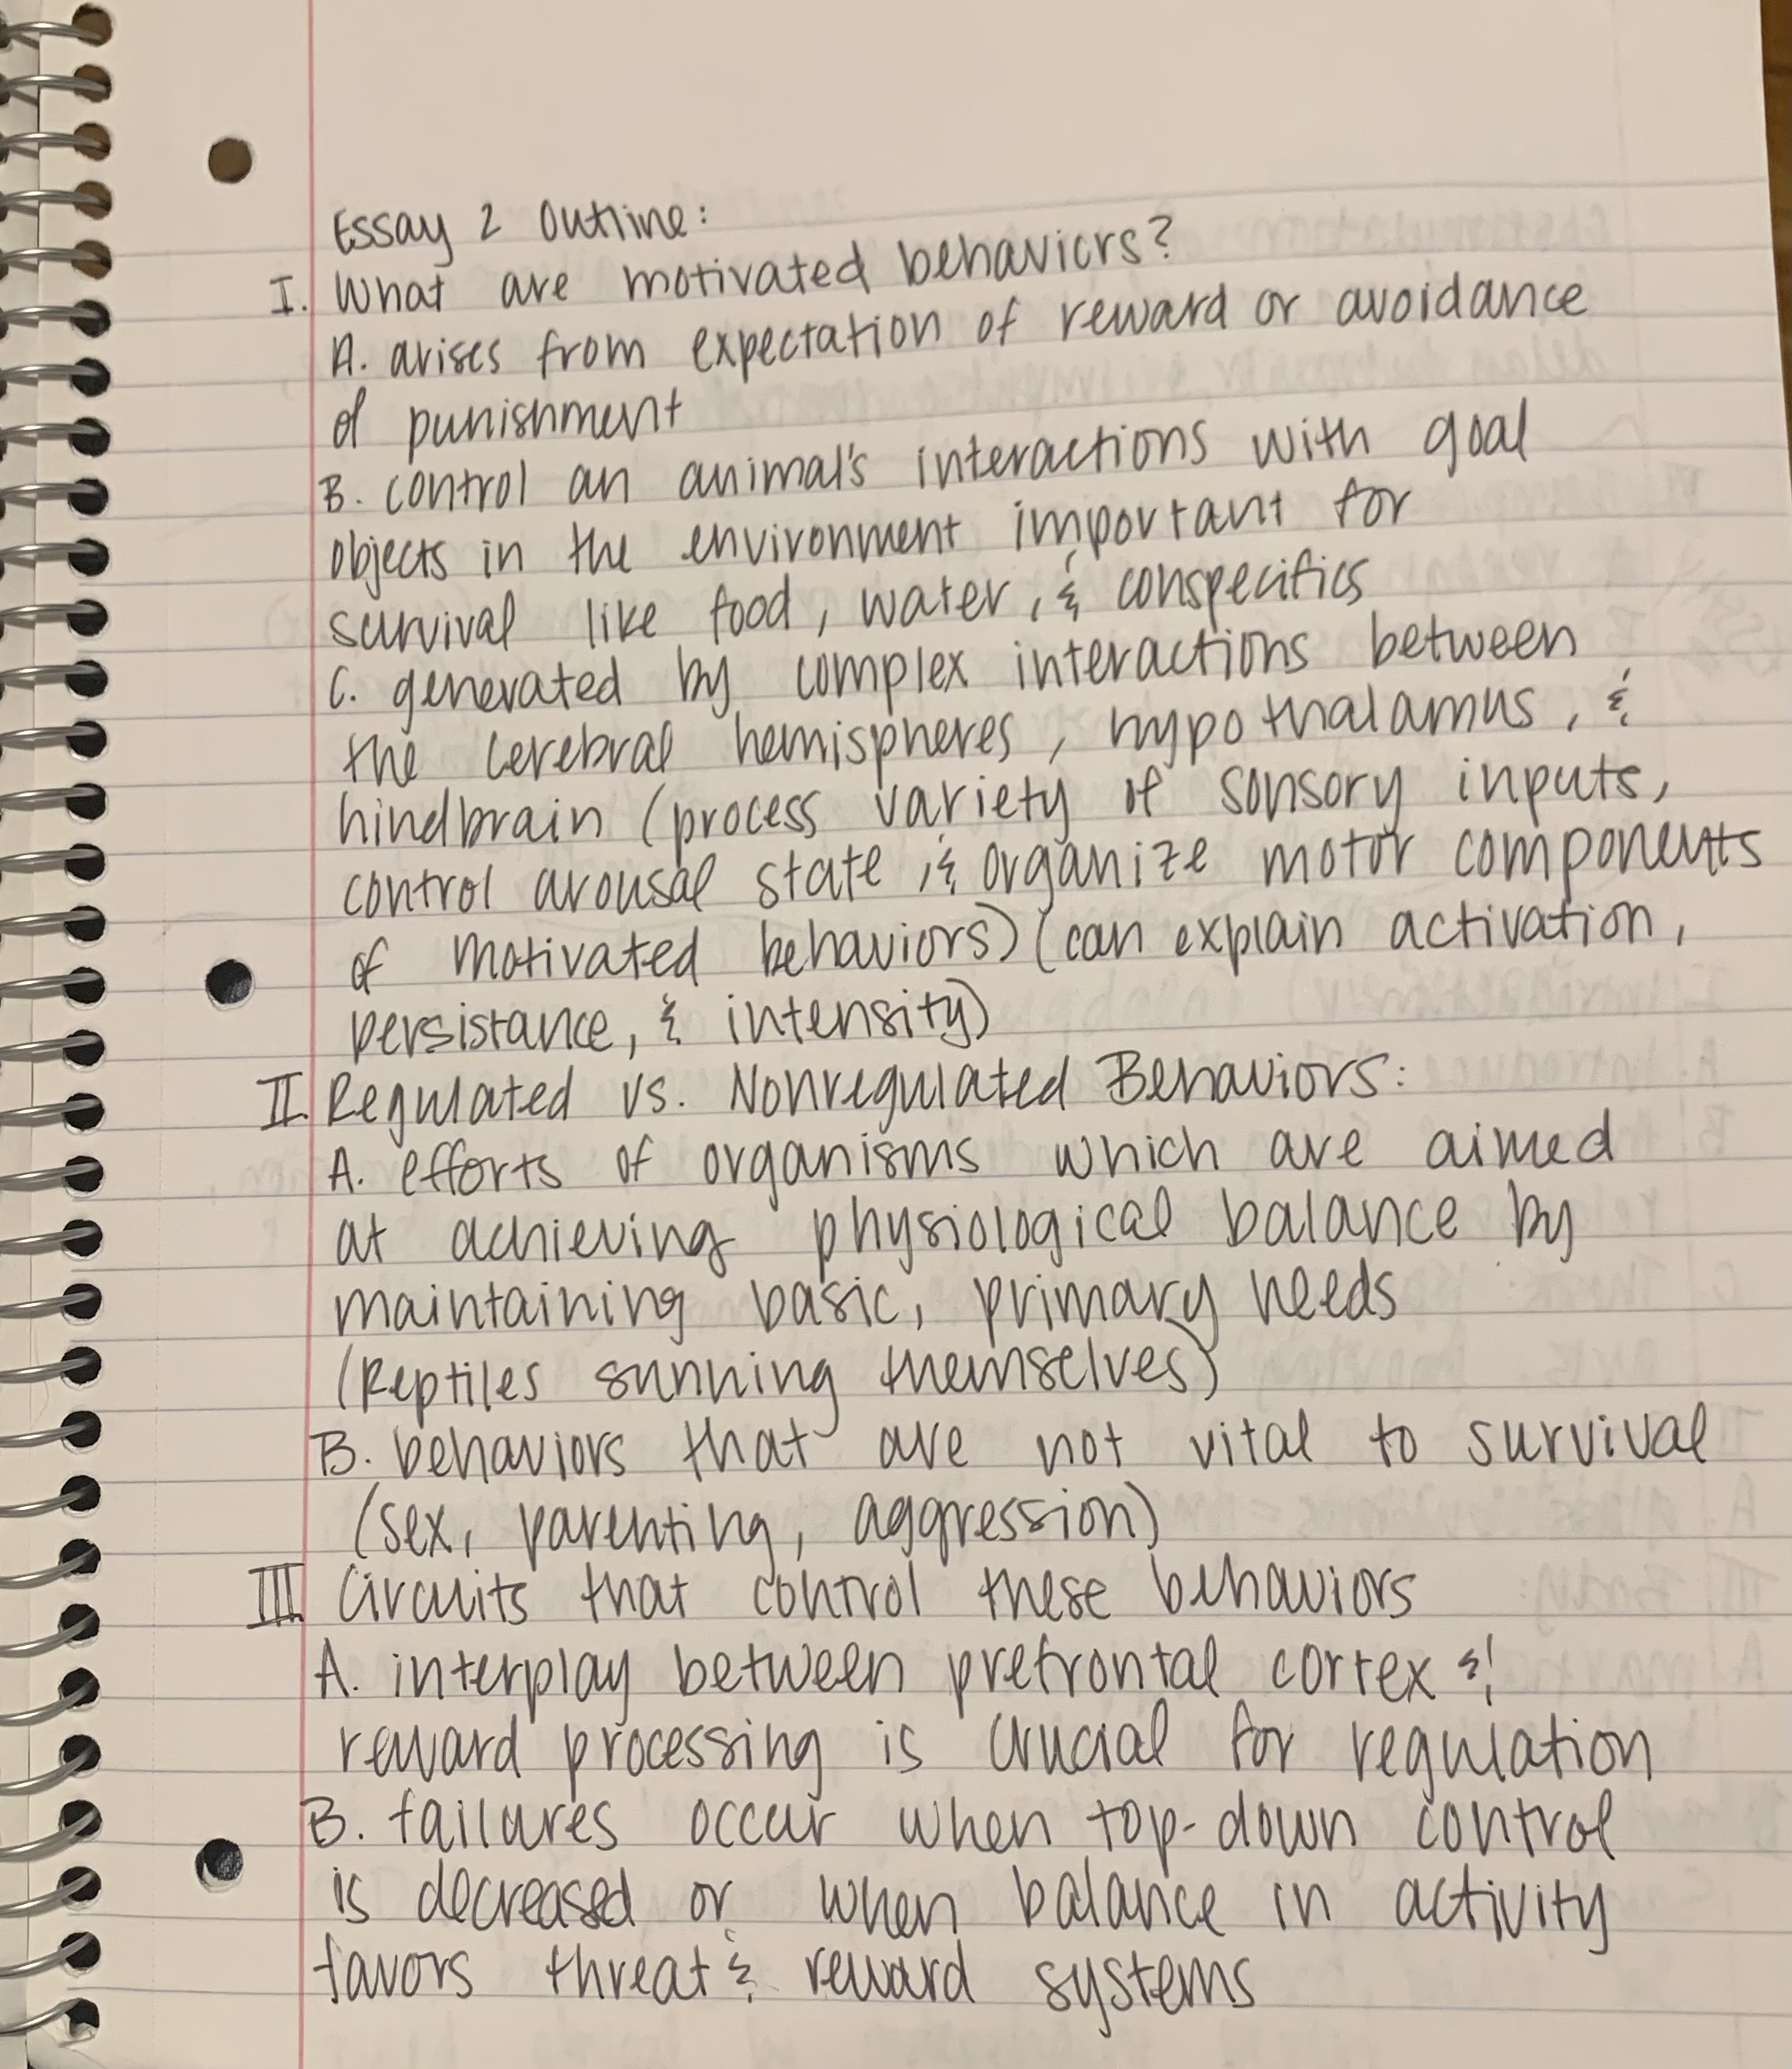 Essay 2 Outline:
I. What are motivated behaviors?
A. arises from expectation of reward or avoidance
of punishment
B. control an animal's interactions with goal
objects in the environment important for
survival like food, water, & conspecifics
C. generated by complex interactions between
the cerebral hemispheres, hypothalamus, &
hindbrain (process variety of sonsory inputs,
control arousal state, & organize motor components
of motivated behaviors) (can explain activation,
persistance, & intensity)
II. Regulated vs. Nonregulated Behaviors:
A. efforts of organisms which are aimed
at achieving physiological balance by
maintaining basic, primary needs
(Reptiles sunning themselves)
B. behaviors that are not vital to survival
(sex, parenting, aggression)
III. Circuits that control these behaviors
A. interplay between prefrontal cortex &
reward processing is crucial for regulation
B. failures occur when top-down control
is decreased or when balance in activity
favors threat & reward systems